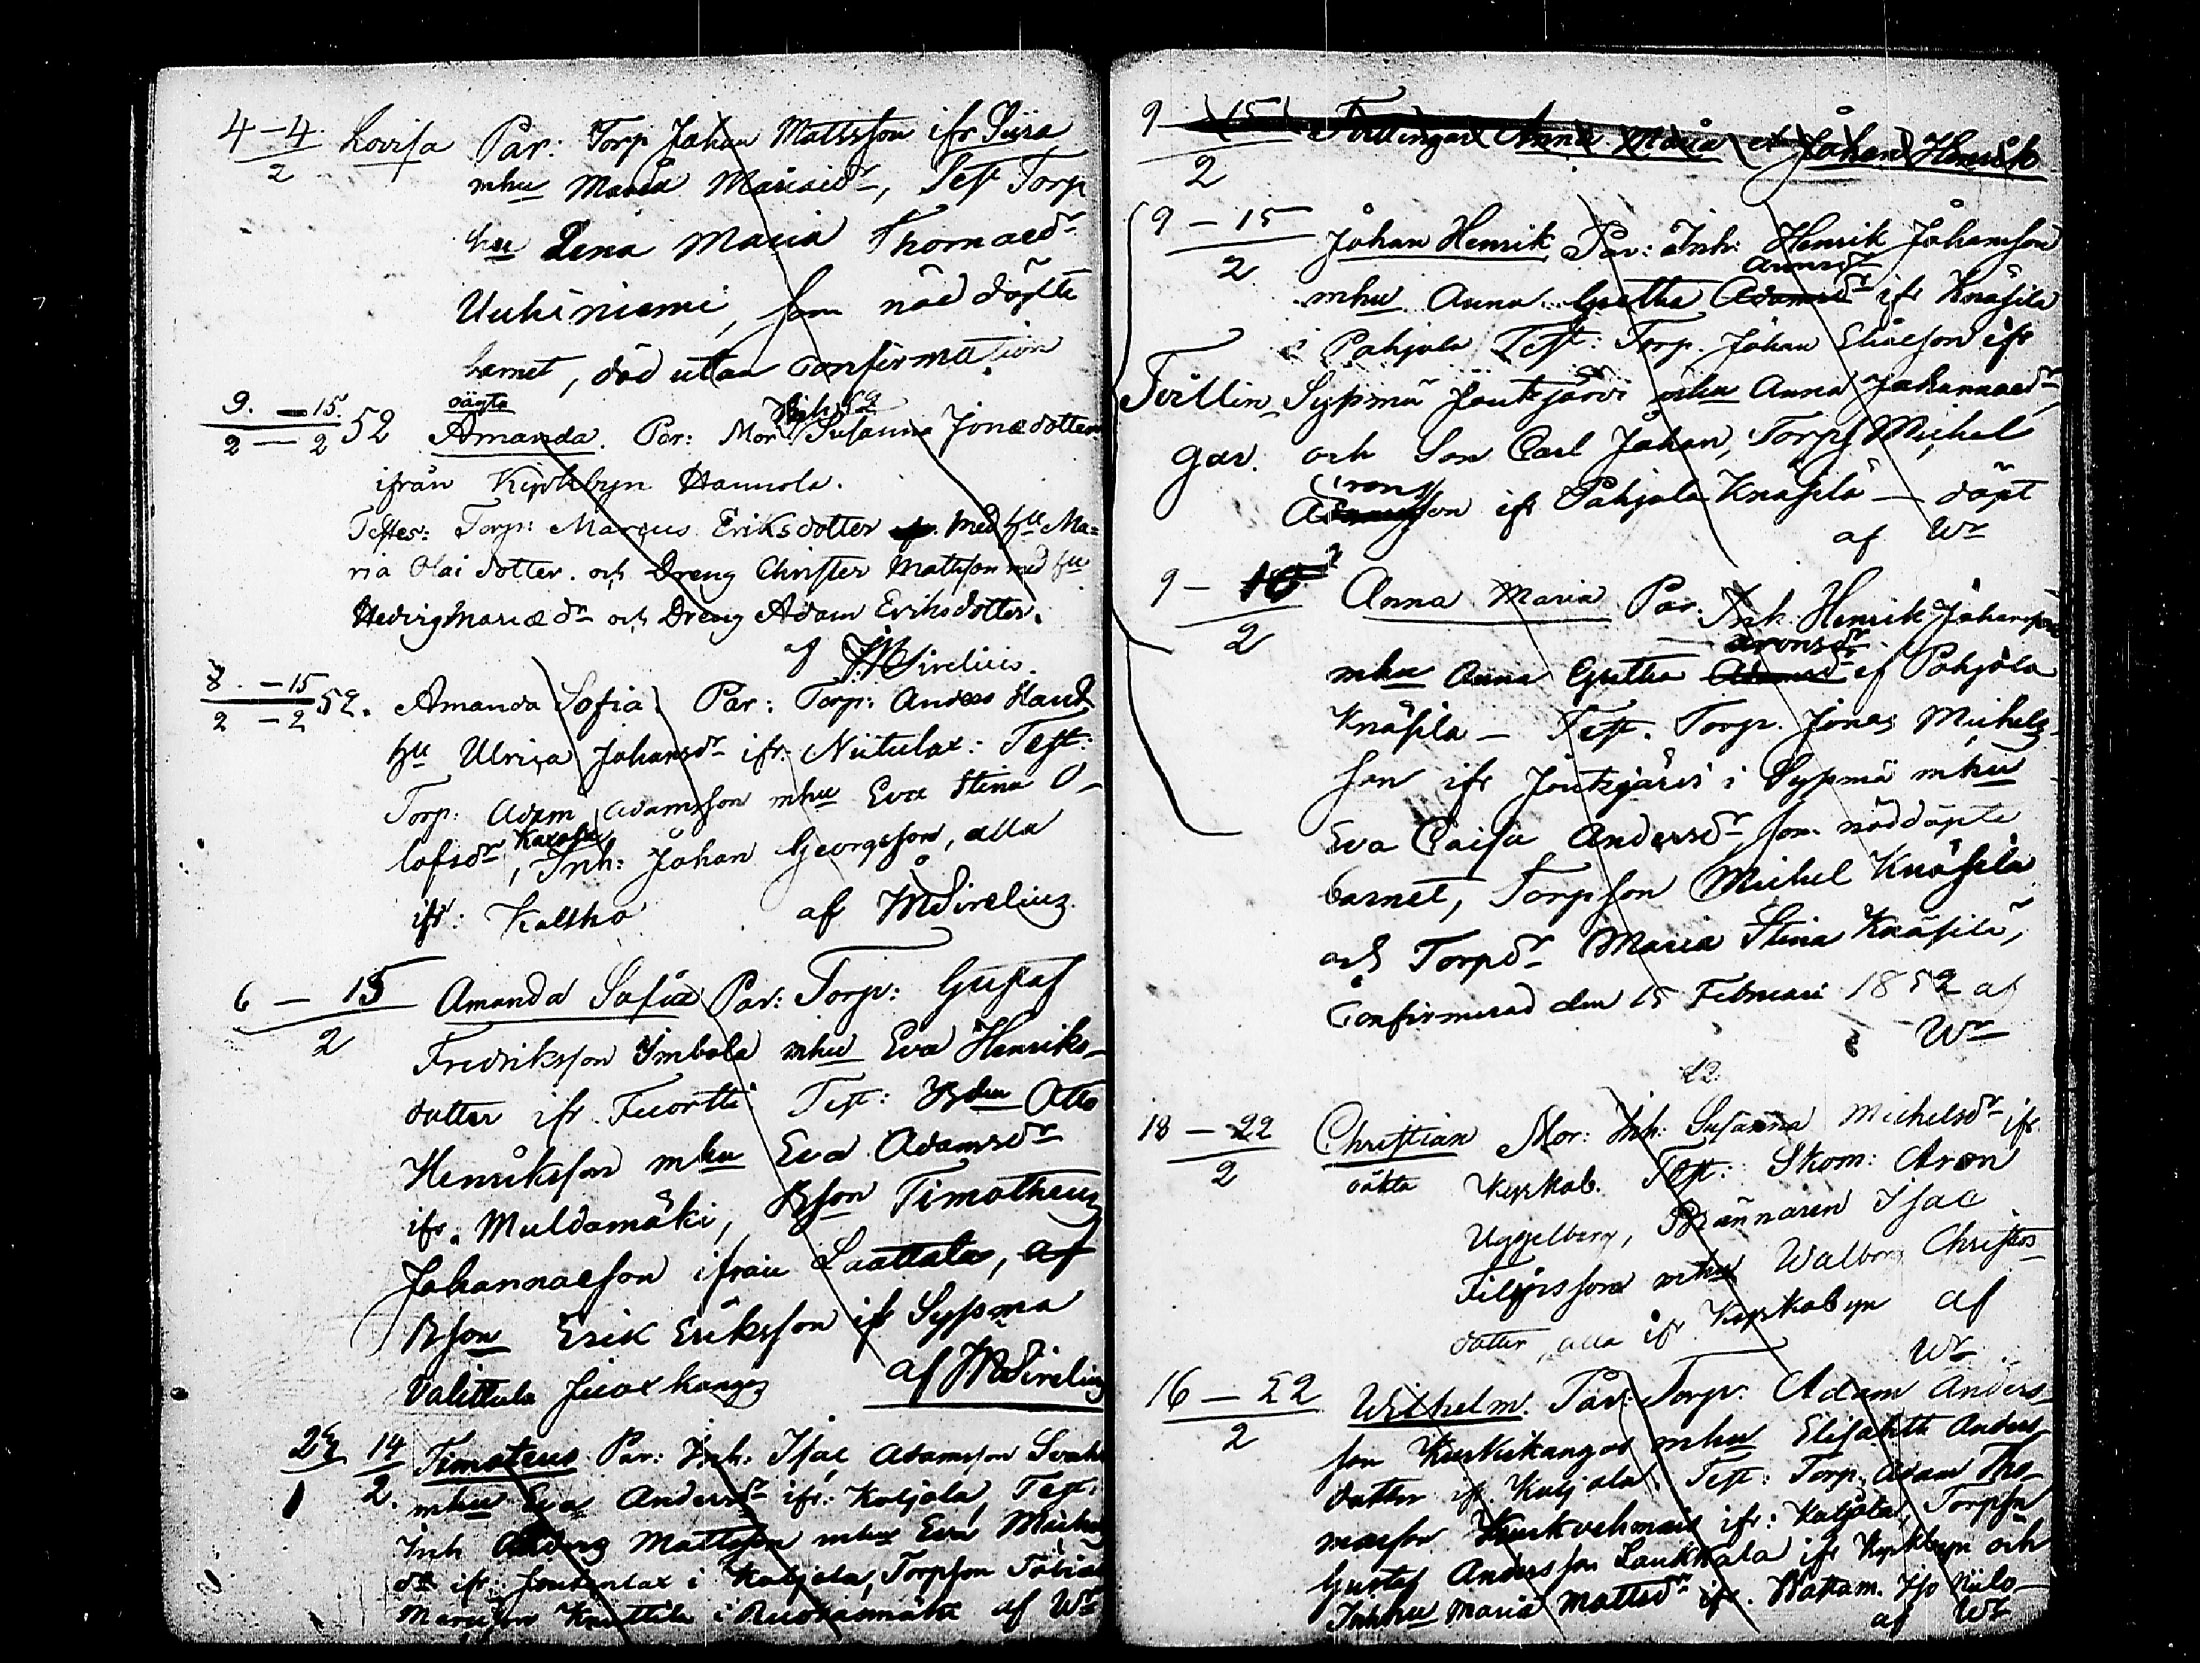 4 – 4/2 Lovisa Par: Torp Johan Mattsson ifr Siira
mhu Maria Mariaedr, Test Torp
hu Lena Maria Thomaedr
Uuhiniemi, som nöd döpte
barnet, död utan confirmation
9. – 15./2 – 2 52 oägta Amanda. Par: Mor Inh: 52 Susanna Jonædotter
ifrån Kyrkbyn Hannola.
Testes: Torp: Marcus Eriksdotter med hu Ma=
ria Olai dotter. och Dreng Christer Mattson med hu
Hedvig Mariædr och Dreng Adam Eriksdotter.
af JMSirelius.
8. – 15/2 – 2 52. Amanda Sofia Par: Torp: Anders
hu Ulrica Johansdr ifr: Niitulax: Test:
Torp: Adam Adamsson mhu Eva Stina O-
lofsdr, Inh: Johan Georgsson, alla
ifr: Kaltho af MSirelius
6 – 15/2 Amanda Sofia Par: Torp: Gustaf
Fredriksson Ymbola mhu Eva Henriks-
dotter ifr. Tuortti Test: Bden Otto
Henriksson mhu Eva Adamsdr
ifr. Muldamäki, Bson Timotheus
Johannaeson ifrån Laattala, af
Bson Erik Eriksson ifr Sysmä
Valittula af MSirelius
14/2. Timoteus Par: Inh: Isac Adamsson
mhu Eva Andersdr ifr: Kaljala, Test:
Inh Mattsson mhu Eva Michels
dr ifr: i Kaljala, Torpson Tobias
i af Wr
9 – 15/2 Tvillingar Anna Maria et Johan Henrik
9 – 15/2 Johan Henrik Par: Inh: Henrik Johansson
Aronsdr
mhu Anna Gretha Adamsdr ifr Knäsilä
i Pahjola Test: Torp. Johan Eliaeson ifr
Tvillin- Sysmä Joutsjärvi mhu Anna Johannaedr,
gar. och Son Carl Johan, Torps Michel
Arons
Adamsson ifr Pahjola Knäsilä – döpt
af Wr
9 – /2 Anna Maria Par. Inh. Henrik Johansson
Aronsdr
mhu Anna Gretha Adamsdr if Pahjola
Knäsila – Test. Torp. Jonas Michels-
son ifr Joutsjärvi i Sysmä mhu
Eva Caisa Andersdr, som nöddöpte
barnet, Torpson Michel Knäsilä
och Torpdr Maria Stina Knäsilä,
Confirmerad den 15 Februari 1852 af
Wr
22.
18 – 22/2 Christian Mor: Inh: Susanna Michelsdr ifr
oäkta Kyrkob. Test: Skom: Aron
Uggelberg, Brännaren Isac
Filipsson mhu Walborg Christers-
dotter, alla ifr Kyrkobyn af
Wr
16 – 22/2 Wilhelm. Par: Torp. Adam Anders-
son Kurkikangas mhu Elisabeth Anders-
dotter if. Kaljala. Test: Torp. Adam Tho-
maeson ifr: Kaljala, Torpson
Gustaf Andersson Laukkala ifr Kyrkbyn och
Inhhu Maria Mattsdr ifr.
af Wr